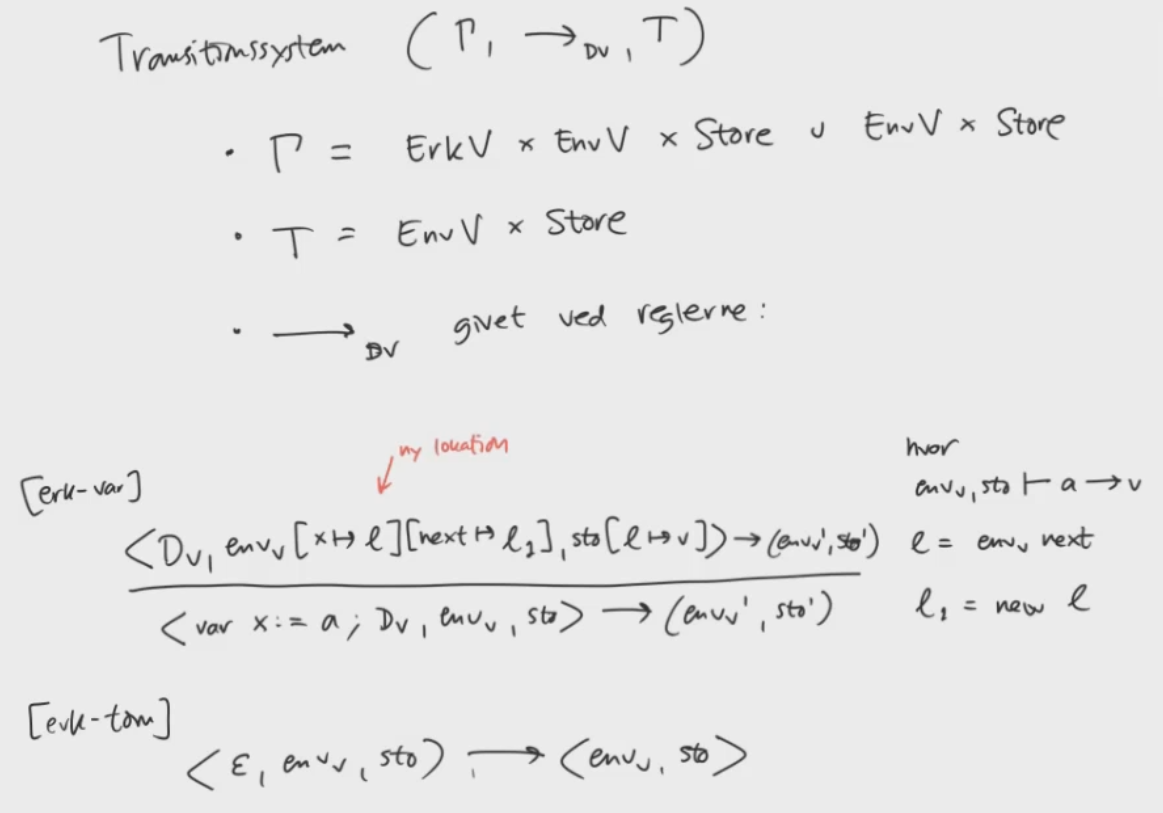 Transitionssystem (Γ, →DV, T)
• Γ = ErkV × EnvV × Store ∪ EnvV × Store
• T = EnvV × Store
• →DV givet ved reglerne:
ny location
[erk-var]
<DV, envv[x↦l][next↦l1], sto[l↦v]> → (envv', sto')
<var x := a; DV, envv, sto> → (envv', sto')
hvor
envv, sto ⊢ a → v
l = envv next
l1 = new l
[erk-tom]
<ε, envv, sto) → <envv, sto>